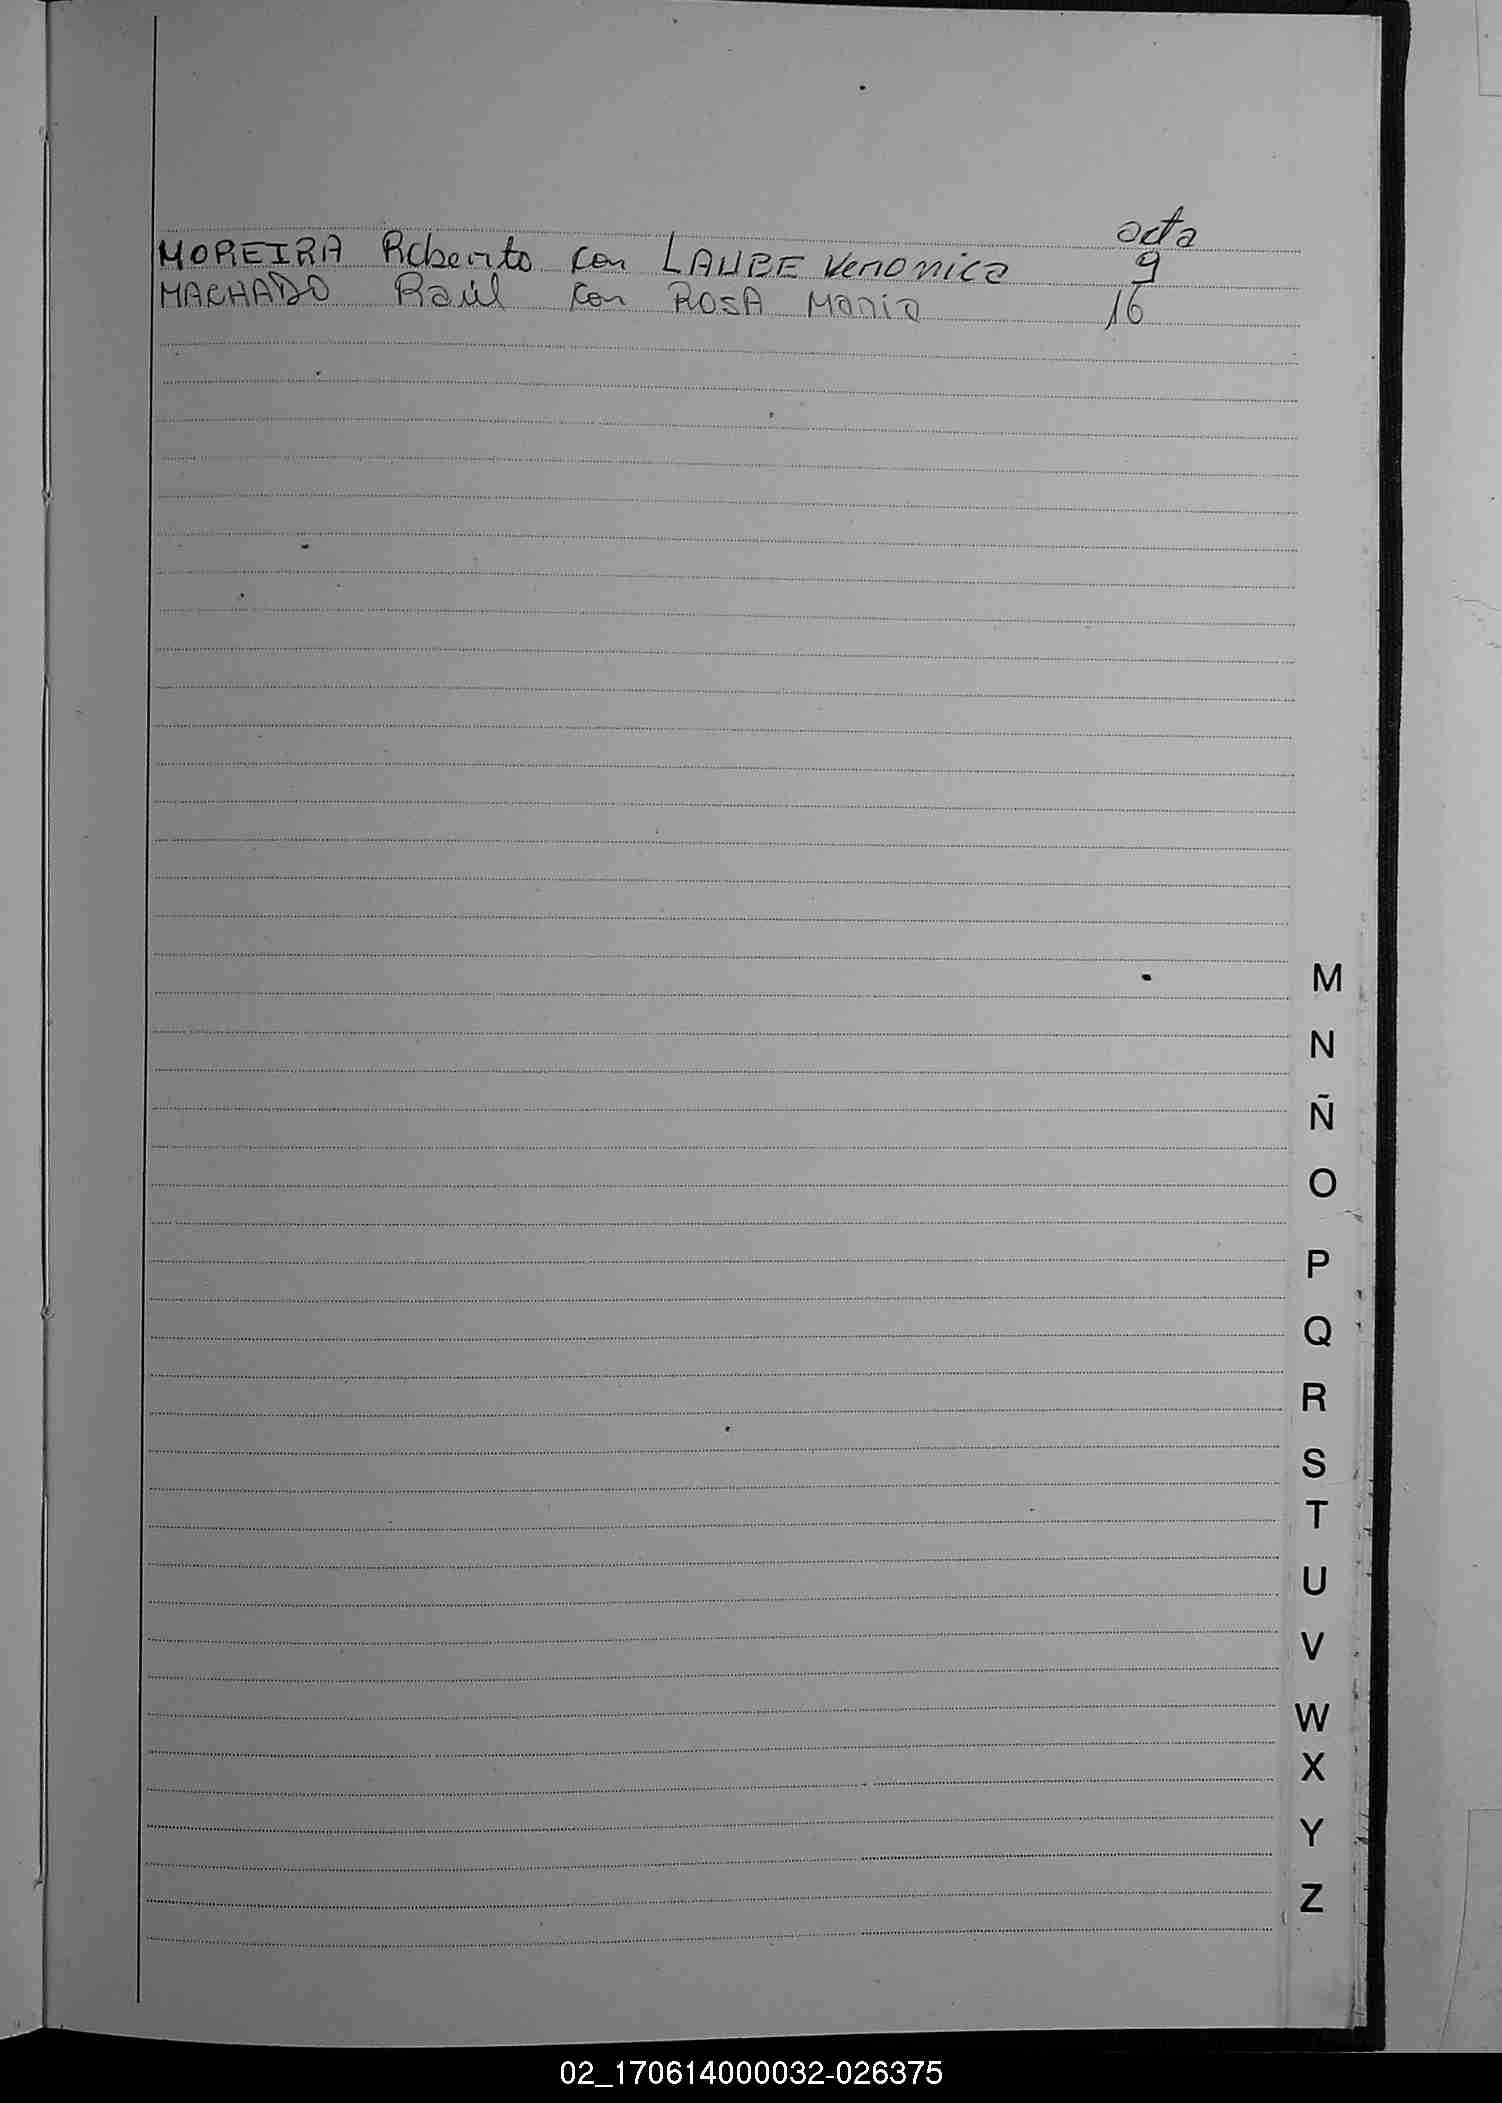 acta
MOREIRA Roberto con LAUBE Veronica 9
MACHADO Raúl con ROSA Maria 16
M
N
Ñ
O
P
Q
R
S
T
U
V
W
X
Y
Z
02_170614000032-026375